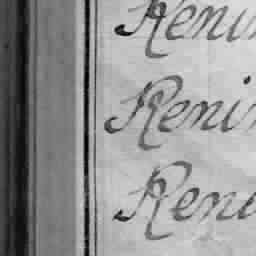 Renin
Renin
Reni